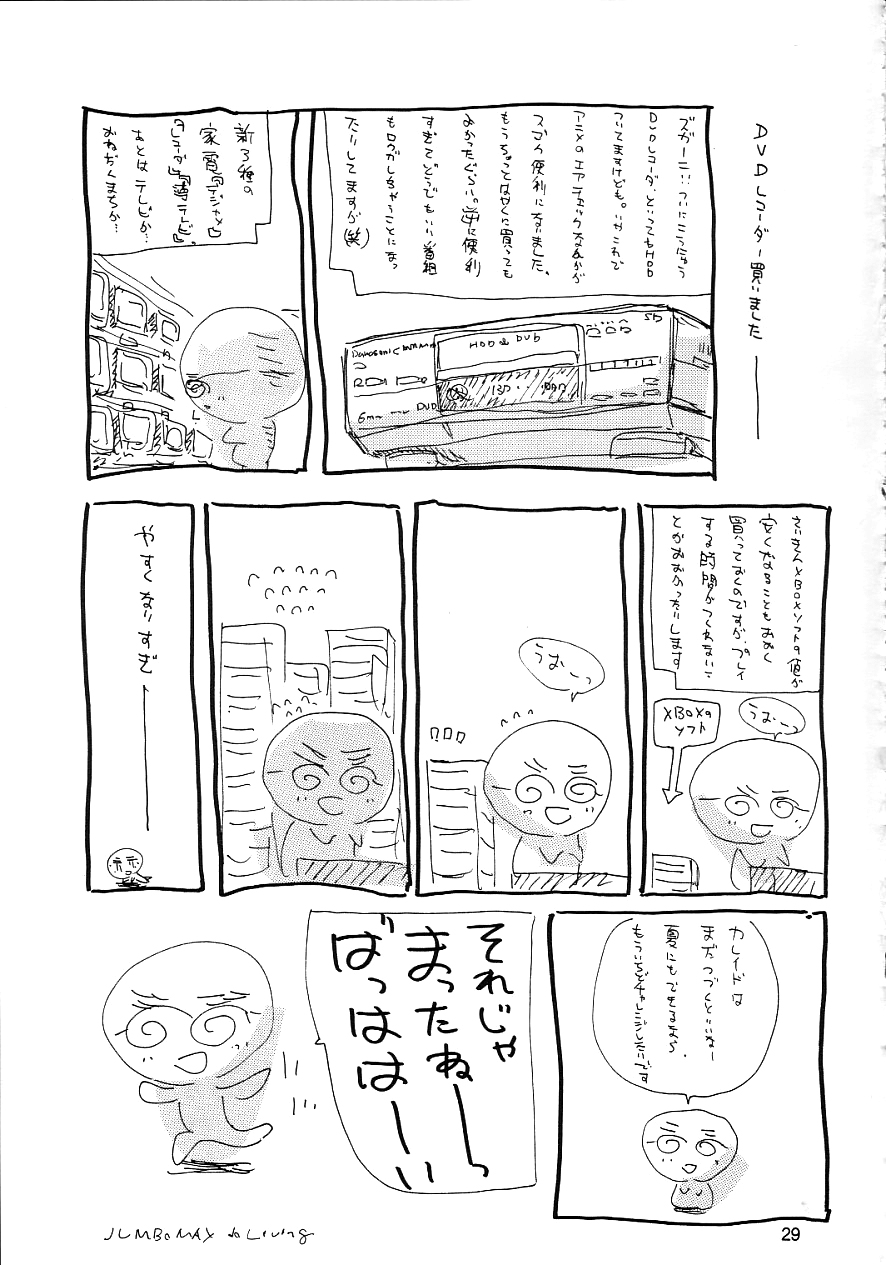 DVDレコーダー買いました
ズガーン…ついにこうにゅう
DVDレコーダ、といってもHDD
ついてますけども。いやこれで
アニメのエアチェックなんかが
スゴク便利になりました。
もうちょっとはやくに買っても
よかったぐらい。逆に便利
すぎてどうでもいい番組
もロクガしちゃうことになっ
たりしてますが(笑)
HDD & DVD
SD
DVD
新3種の
家電『デジカメ』
『レコーダ』『薄テレビ』、
あとはテレビか…
おねだんまちか…
さいきんXBOXソフトの値が
安くなることもおおく
買っておくのですが、プレイ
する時間がつくれないこ
とがおおかったりします
うおーっ
XBOXの
ソフト
うおーっ
やすくなりすぎ
カレイドは
まだつづくといいなー
夏にもできるなら、
もういちどチャレンジしたいです
それじゃ
まったねーっ
ばっははーい
JUMBOMAX do Living
29